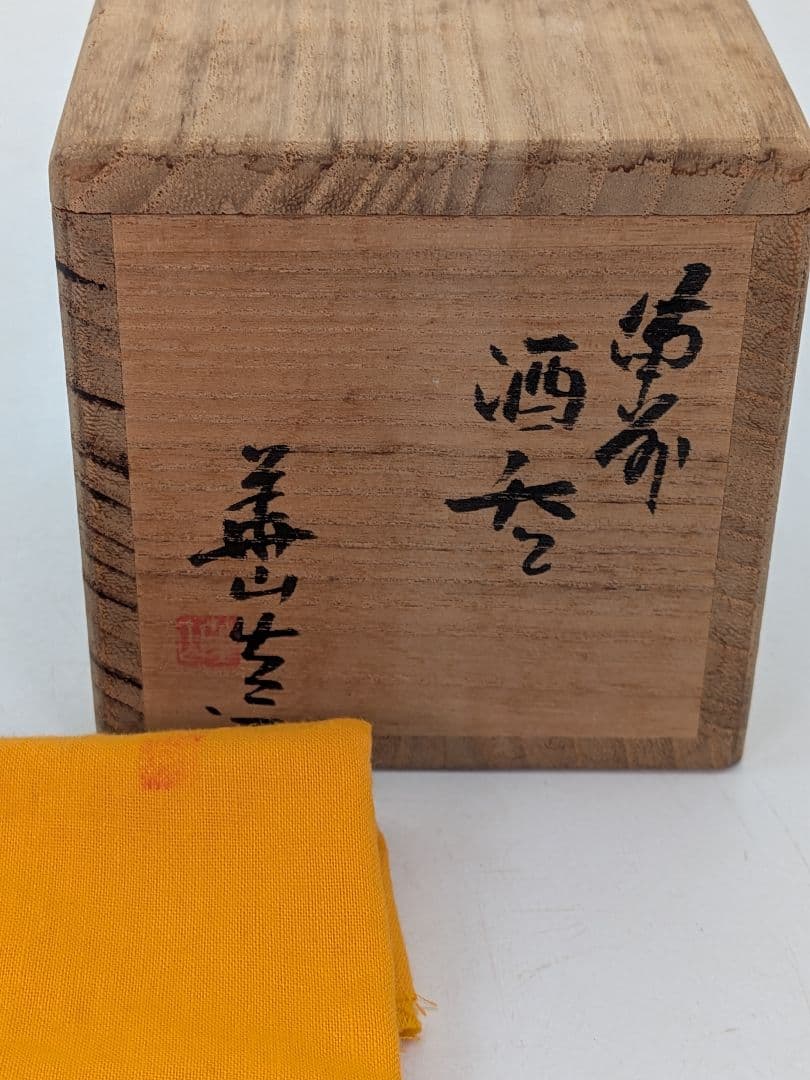 備前
酒呑
華山